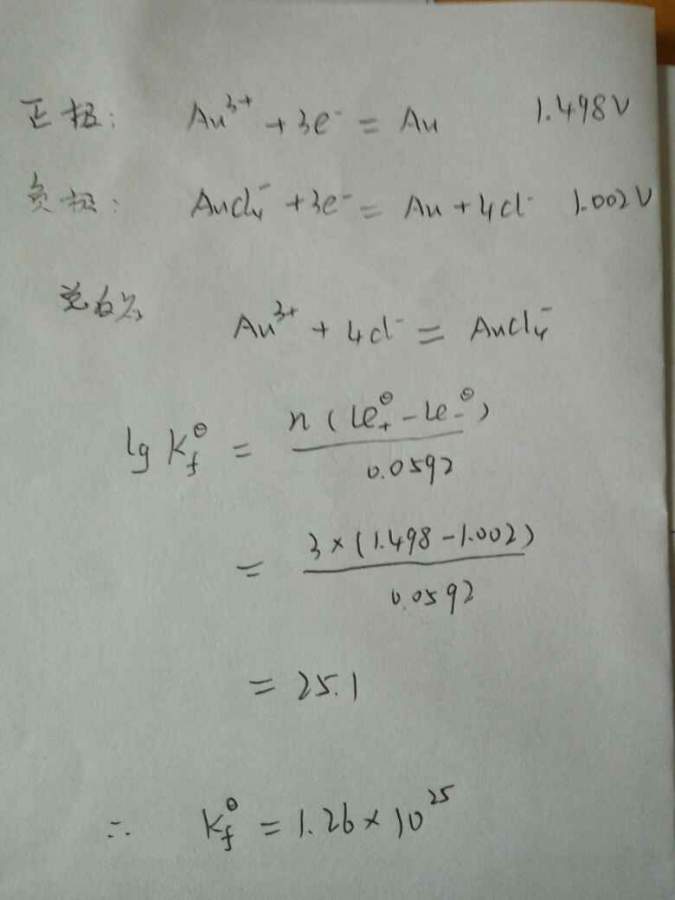 正极: Au³⁺ + 3e⁻ = Au 1.498V
负极: AuCl₄⁻ + 3e⁻ = Au + 4Cl⁻ 1.002V
总石为
Au³⁺ + 4Cl⁻ = AuCl₄⁻
lg K_f^θ = n(φ₊^θ - φ₋^θ) / 0.0592
= 3×(1.498-1.002) / 0.0592
= 25.1
∴ K_f^θ = 1.26×10²⁵